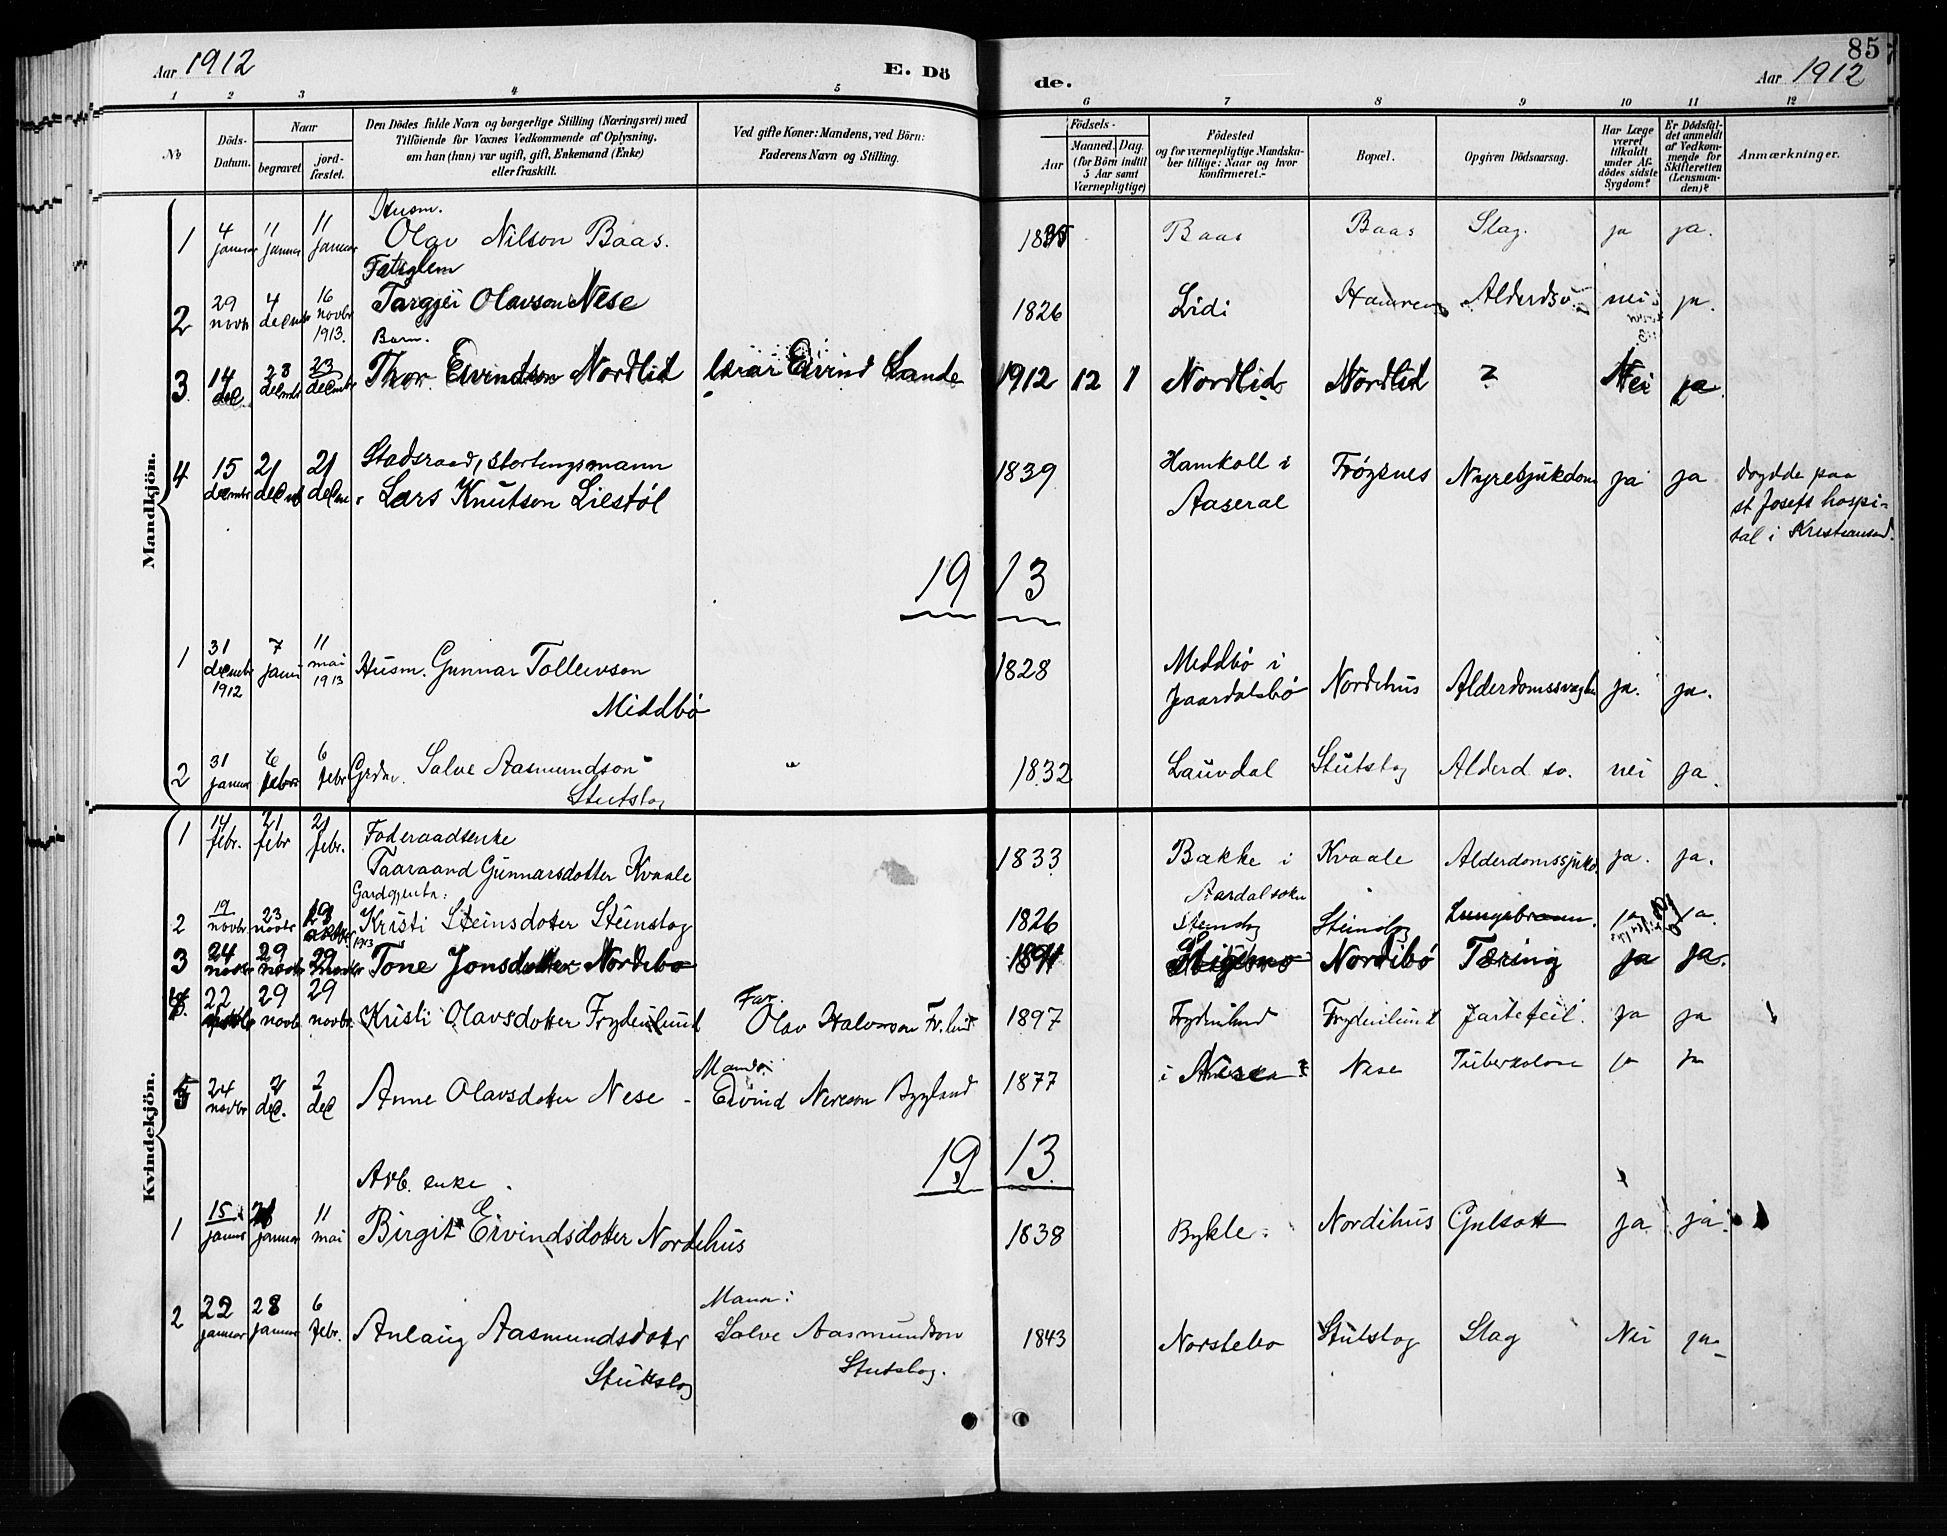 Aar 1912
E. Dö
de.
Aar 1912
85
1 2 3 4 5 6 7 8 9 10 11 12
No
Döds-Datum.
Naar
begravet.
jord-fæstet.
Den Dödes fulde Navn og borgerlige Stilling (Næringsvei) med
Tilföiende for Voxnes Vedkommende af Oplysning,
om han (hun) var ugift, gift, Enkemand (Enke)
eller fraskilt.
Ved gifte Koner: Mandens, ved Börn:
Faderens Navn og Stilling.
Födsels-
Aar
Maaned.
Dag.
(for Börn indtil
5 Aar samt
Værnepligtige)
Födested
og for værnepligtige Mandska-
ber tillige: Naar og hvor
konfirmeret.-
Bopæl.
Opgiven Dödsaarsag.
Har Læge
været
tilkaldt
under Af-
dödes sidste
Sygdom?
Er Dödsfal-
det anmeldt
af Vedkom-
mende for
Skifteretten
(Lensman-
den)?
Anmærkninger.
Mandkjön.
1 4 januar 11 januar 11 januar Husm. Olav Nilson Baas. 1835 Baas Baas Slag. ja ja.
2 29 novbr 4 decmbr 16 novbr 1913. Fatiglem Targjei Olavson Nese 1826 Lidi Alderdsv. nei ja.
3 14 dec 28 decmbr 23 decmbr Barn. Thor Eivindson Nordlid lærar Eivind Lande 1912 12 1 Nordlid Nordlid ? Nei ja
4 15 decmbr 21 decmb 21 decm Stadsraad, stortingsmann Lars Knutson Liestøl 1839 Hamkoll i Aaseral Frøysnes Nyresjukdom ja ja Døydde paa
st Josefs hospi-
tal i Kristiansand.
19 13
1 31 decmbr 1912 7 janu 11 mai 1913 Husm. Gunnar Tollevson Middbø 1828 Middbø i Jaardalsbø Nordihus ja. ja.
2 31 januar 6 febr 6 febr Grdm. Salve Aasmundson Stutslog " 1832 Lauvdal Stutslog Alderd sv. nei ja.
Kvindekjön.
1 14 febr. 21 febr 21 febr. Føderaadsenke Taaraand Gunnarsdotter Kvaale 1833 Bakke i Aardal sokn Kvaale Alderdomssjukd. ja. ja.
2 19 novbr. 23 novbr 1913 Gardgjenta: Kristi Steinsdotter Steinslog 1826 Steinslog Steinslog Lungebrann. ja ja.
3 24 novbr 29 novbr 29 novbr Tone Jonsdotter Nordebø 1891 Nordibø Tæring ja ja.
4. 22 29 novb 29 novbr. Kristi Olavsdotter Frydenlund Far. Olav Halvorson Fr.lund 1897 Frydenlund Frydenlund Jartefeil. ja ja
5 24 novbr 2 dec. 2 dec Anne Olavsdotter Nese - Mand: Eivind Nereson Bygland 1877 i Nese Nese Tuberkolose ja ja
19 13
1 15 januar januar 11 mai Arb. enke. Birgit Eivindsdotter Nordehus 1838 Bykle. Nordihus Gulsott ja ja
2 22 januar 28 januar 6 febr. Anlaug Aasmundsdotter Stutslog Mann: Salve Aasmundson Stutslog. 1843 Norstebø Stutslog Slag Nei ja